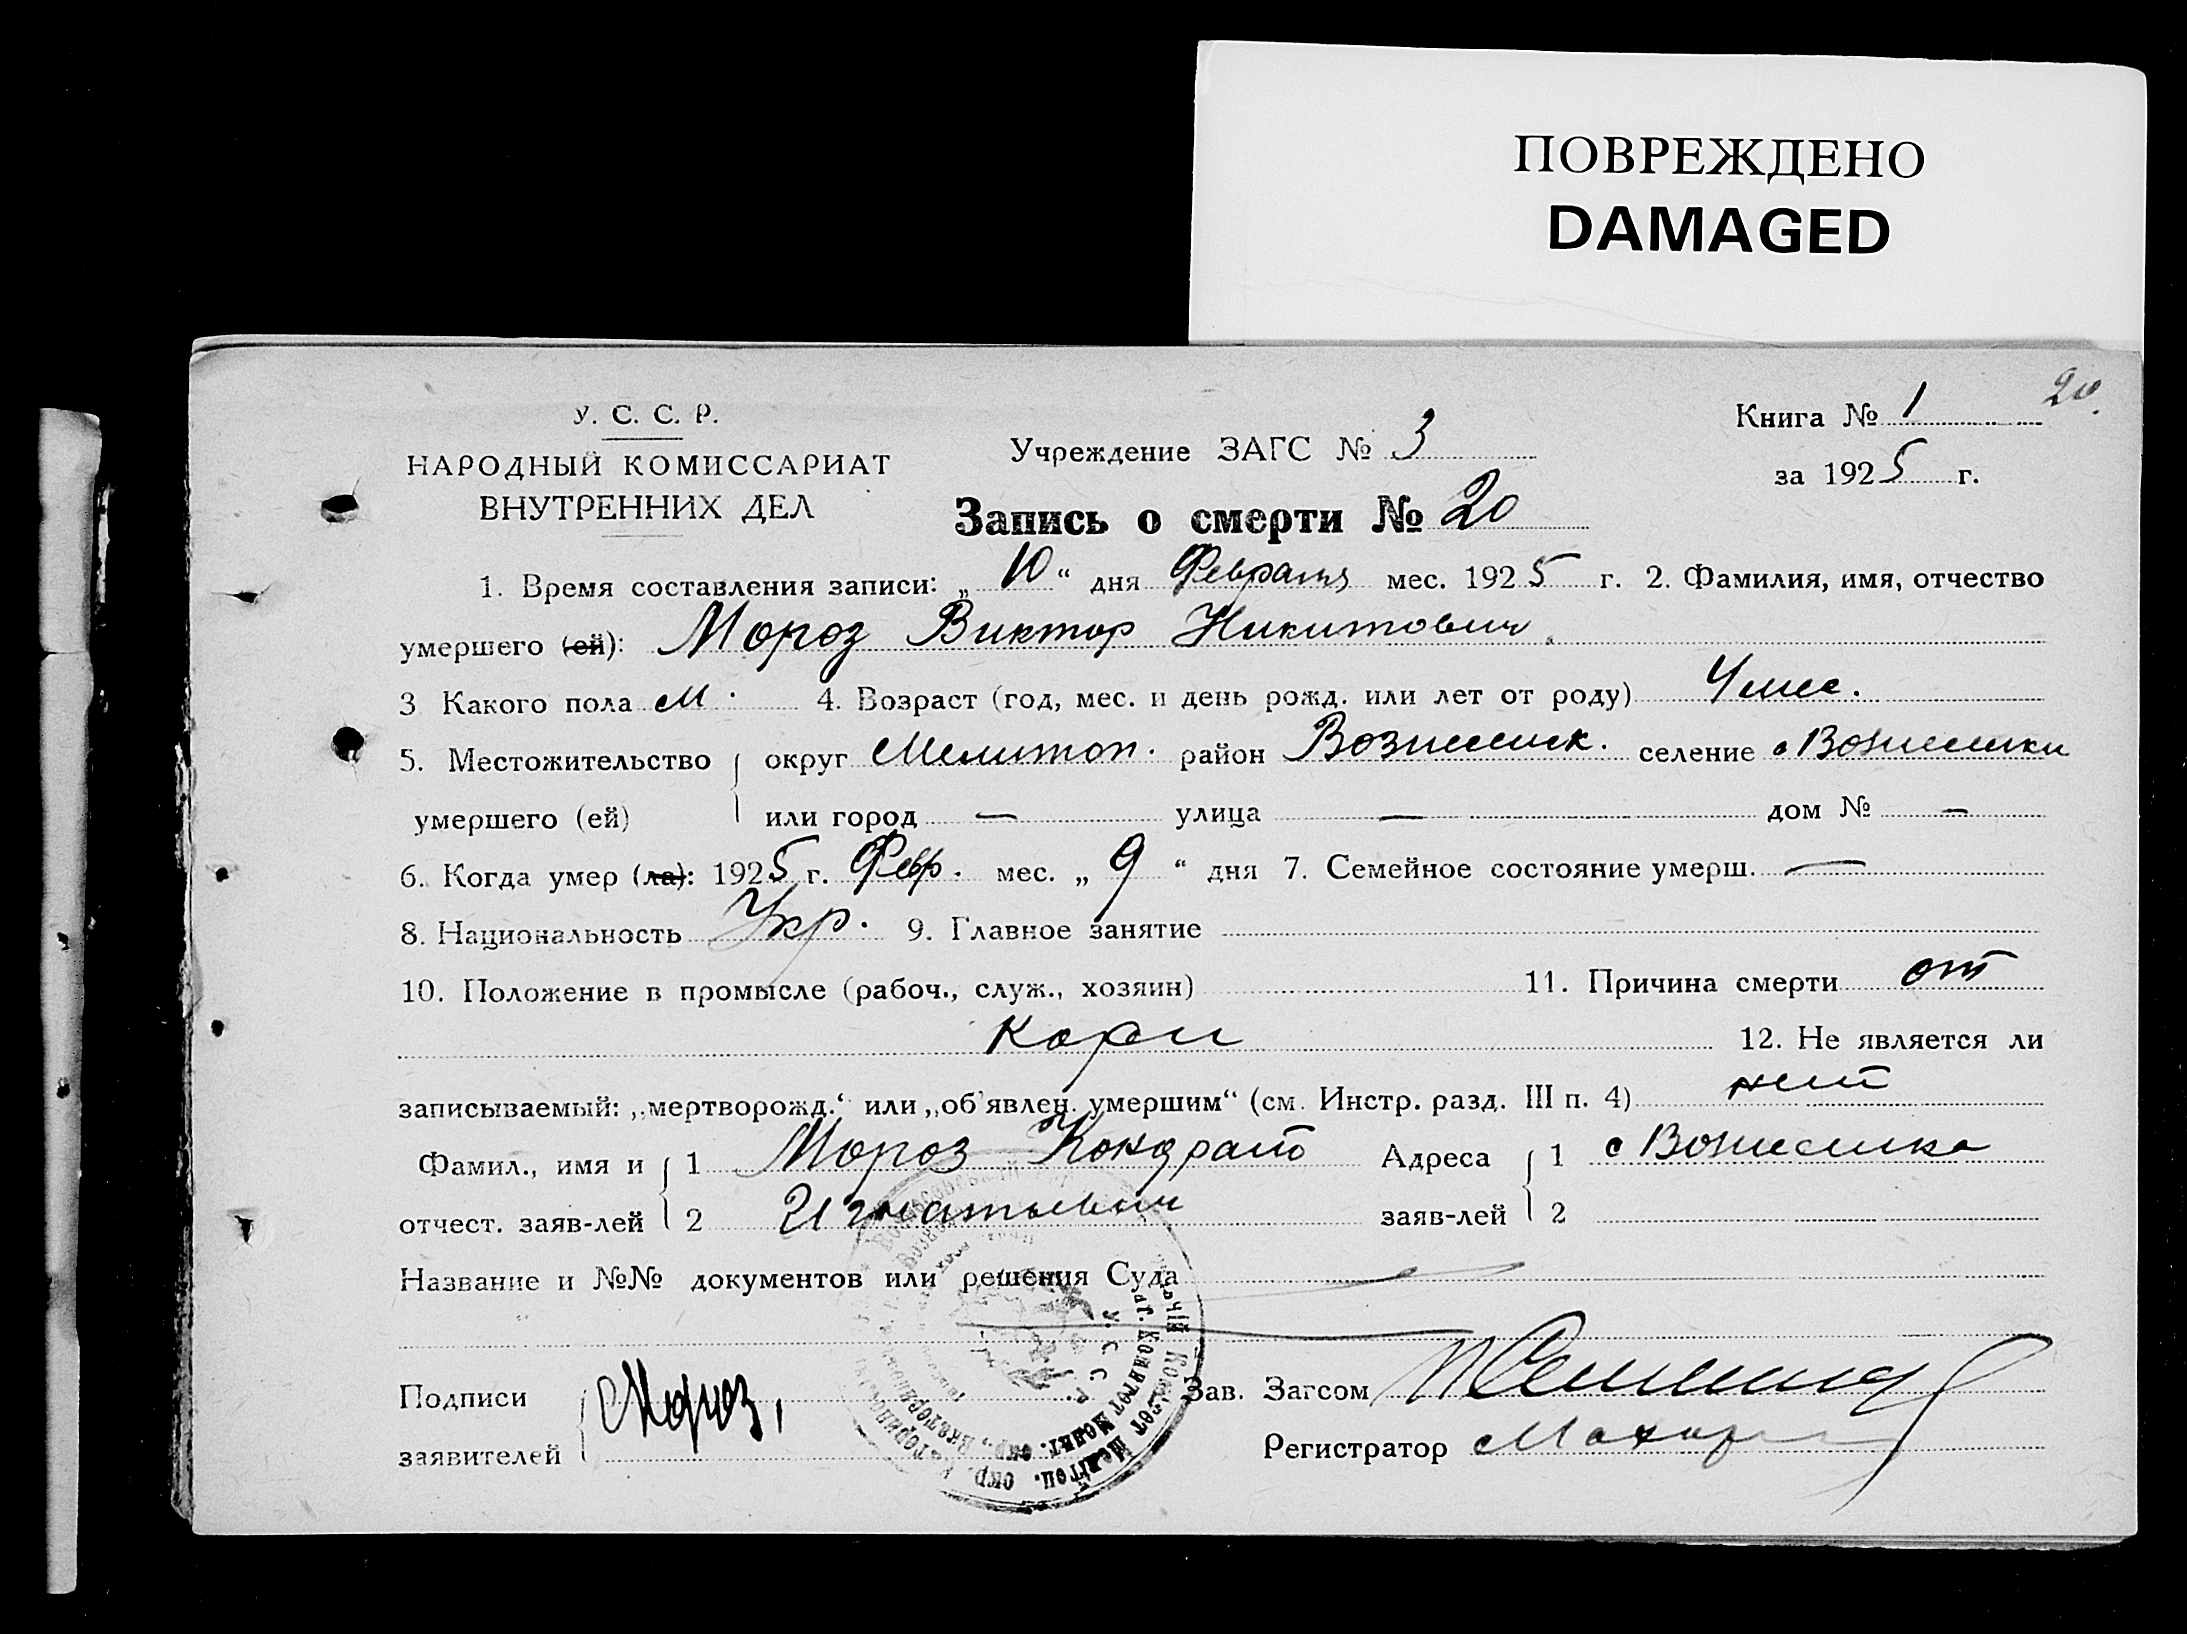 ПОВРЕЖДЕНО
DAMAGED
20.
У. С. С. Р.
НАРОДНЫЙ КОМИССАРИАТ
ВНУТРЕННИХ ДЕЛ
Учреждение ЗАГС № 3
Книга № 1
за 1925 г.
Запись о смерти № 20
1. Время составления записи: „10“ дня Февраля мес. 1925 г. 2. Фамилия, имя, отчество
умершего (ей): Мороз Виктор Никитович.
3 Какого пола М. 4. Возраст (год, мес. и день рожд. или лет от роду) 4 мес.
5. Местожительство округ Мелитоп. район Вознесенск. селение с Вознесенки
умершего (ей) или город — улица — дом № —
6. Когда умер (ла): 1925 г. Февр. мес. „9“ дня 7. Семейное состояние умерш. —
8. Национальность Укр. 9. Главное занятие
10. Положение в промысле (рабоч., служ., хозяин) 11. Причина смерти от
кори 12. Не является ли
записываемый: „мертворожд.“ или „об'явлен. умершим“ (см. Инстр. разд. III п. 4) нет
Фамил., имя и 1 Мороз Кондрат Адреса 1 с Вознесенка
отчест. заяв-лей 2 Игнатьевич заяв-лей 2
Название и №№ документов или решения Суда
Подписи Мороз, Зав. Загсом
заявителей Регистратор
У. С. С. Р.